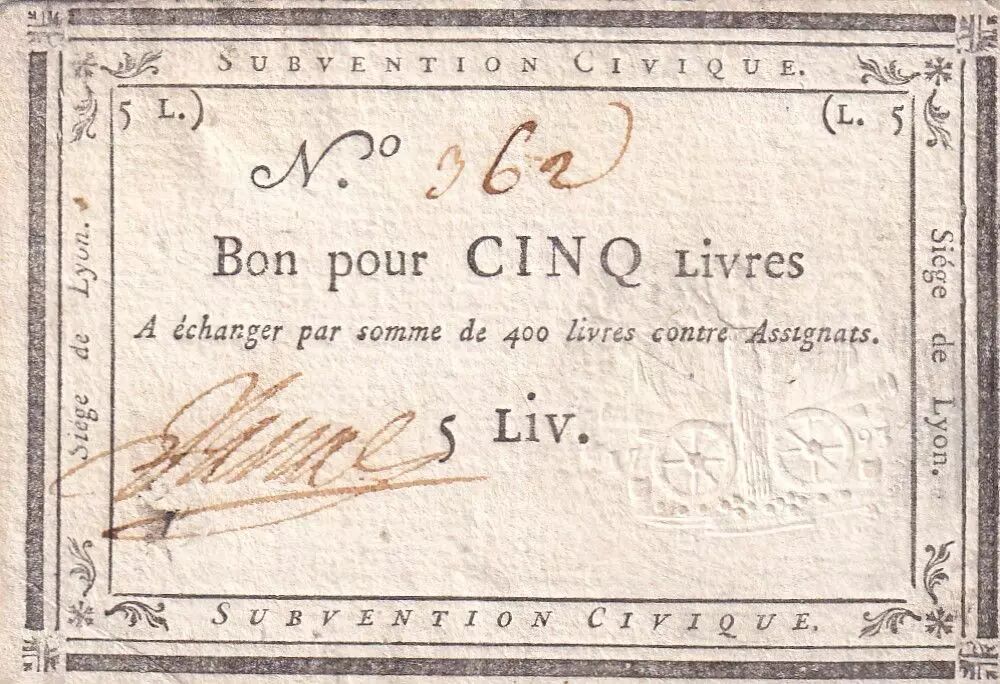 SUBVENTION CIVIQUE.
5 L.) (L. 5
N.º 362
Bon pour CINQ Livres
A échanger par somme de 400 livres contre Assignats.
5 LIV.
SUBVENTION CIVIQUE.
Siége de Lyon.
Siége de Lyon.